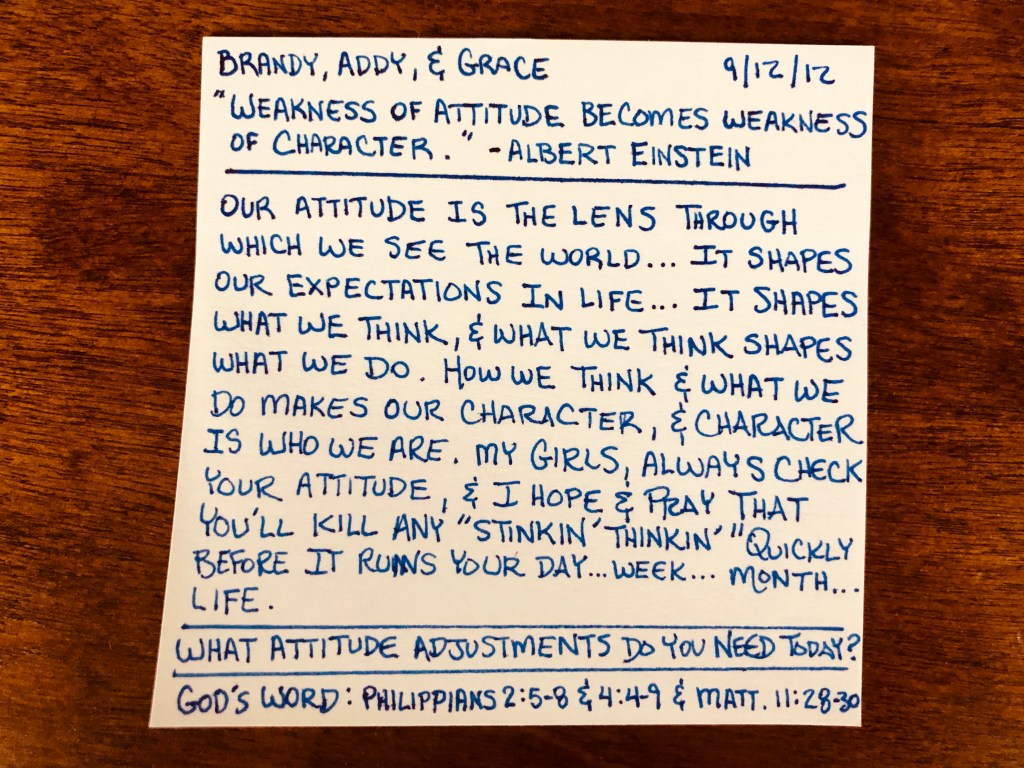 BRANDY, ADDY, & GRACE 9/12/12
"WEAKNESS OF ATTITUDE BECOMES WEAKNESS
OF CHARACTER." -ALBERT EINSTEIN
OUR ATTITUDE IS THE LENS THROUGH
WHICH WE SEE THE WORLD... IT SHAPES
OUR EXPECTATIONS IN LIFE... IT SHAPES
WHAT WE THINK, & WHAT WE THINK SHAPES
WHAT WE DO. HOW WE THINK & WHAT WE
DO MAKES OUR CHARACTER, & CHARACTER
IS WHO WE ARE. MY GIRLS, ALWAYS CHECK
YOUR ATTITUDE, & I HOPE & PRAY THAT
YOU'LL KILL ANY "STINKIN' THINKIN'" QUICKLY
BEFORE IT RUINS YOUR DAY...WEEK... MONTH...
LIFE.
WHAT ATTITUDE ADJUSTMENTS DO YOU NEED TODAY?
GOD'S WORD: PHILIPPIANS 2:5-8 & 4:4-9 & MATT. 11:28-30